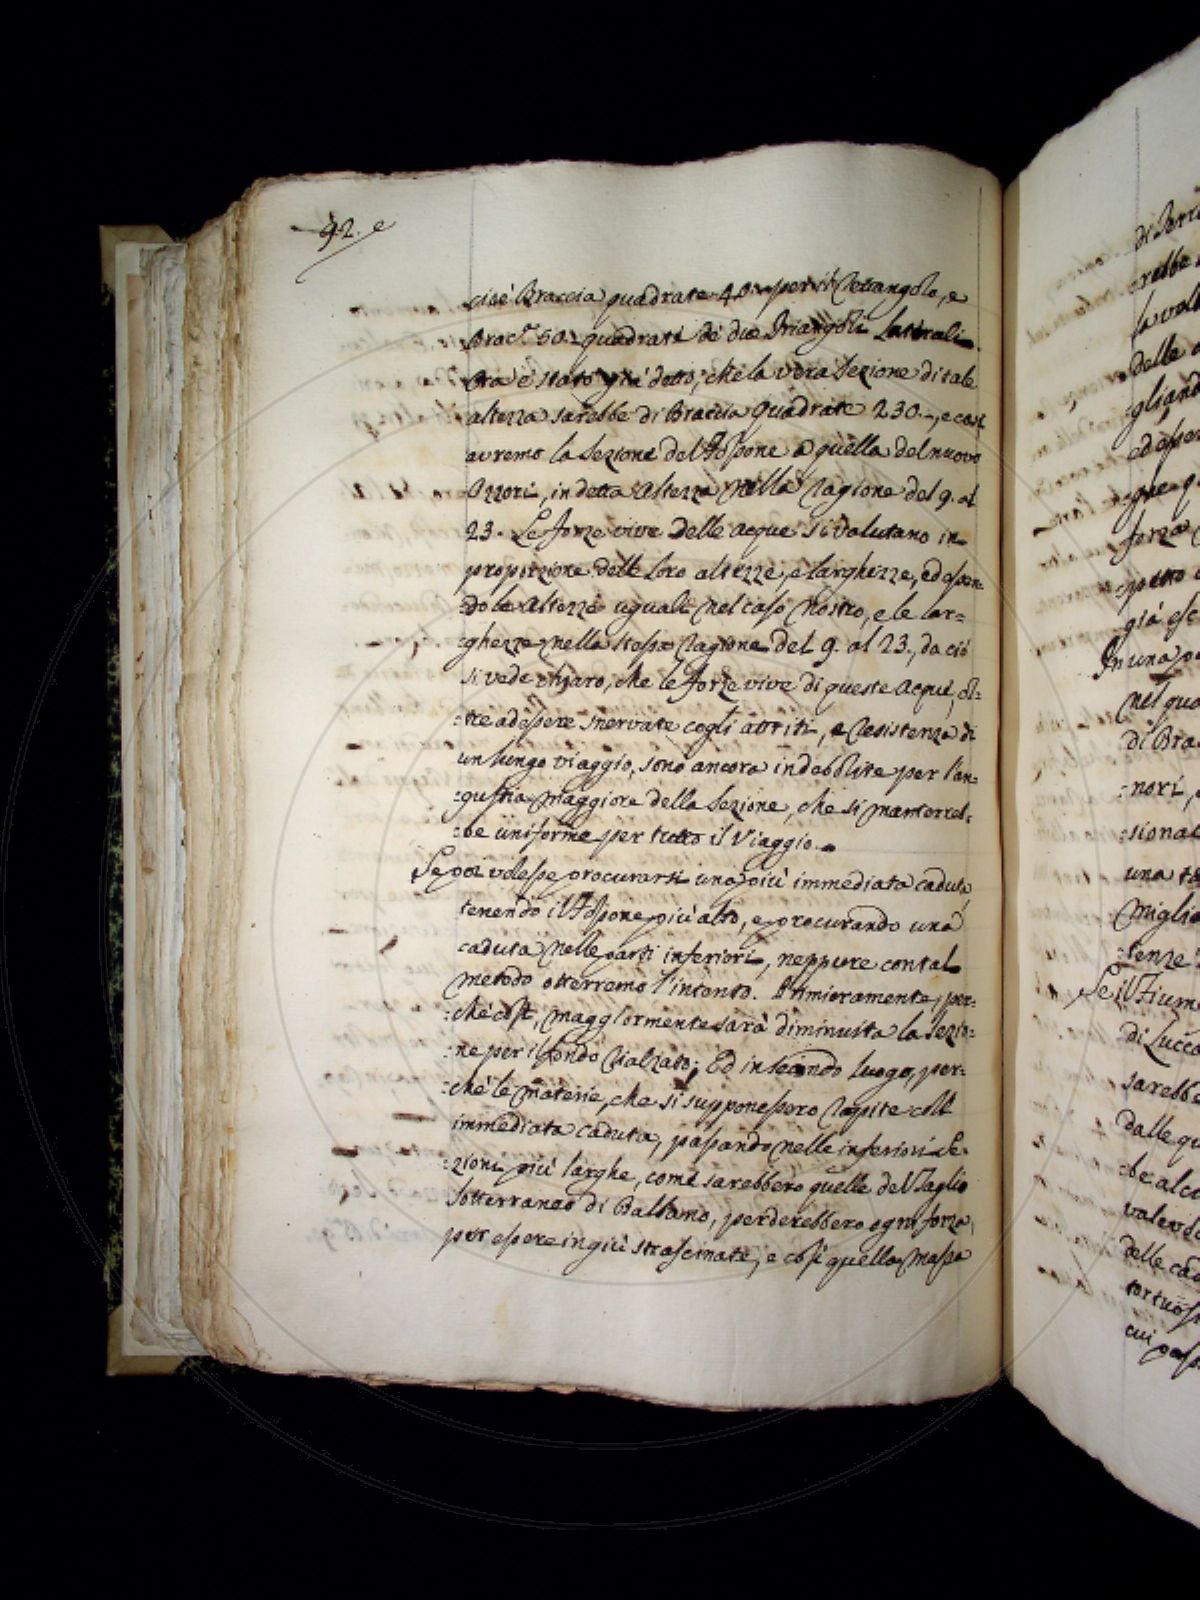 92. e
cioè Braccia quadrate 40. per il Rettangolo, e
Brac.ª 50. quadrati de due Triangoli Laterali.
Ora è stato già detto, che la vera Sezione di tale
altezza sarebbe di Braccia quadrate 230., e così
avremo la Sezione del Fossone a quella del nuovo
Ozzori, in detta Altezza nella ragione del 9. al
23. Le forze vive delle acque si valutano in
proporzione delle loro altezze, e larghezze, ed essen=
do le altezze uguali nel caso nostro, e le lar=
:ghezze nella stessa ragione del 9. al 23., da ciò
si vede chiaro, che le forze vive di queste acque, ol=
:tre ad essere snervate cogli attriti, e resistenza di
un lungo viaggio, sono ancora indebolite per l'an=
:gustia maggiore della Sezione, che si manterreb=
:be uniforme per tutto il Viaggio.
Se poi volesse procurarsi una più immediata caduta,
tenendo il Fossone più alto, e procurando una
caduta nelle parti inferiori, neppure con tal
metodo otterremo l'intento. Primieramente, per=
:chè così, maggiormente sarà diminuita la Sezio=
:ne per il fondo rialzato; Ed in secondo luogo, per=
:chè le materie, che si supponessero rapite coll'
immediata caduta, passando nelle inferiori Se=
:zioni più larghe, come sarebbero quelle del Taglio
sotterraneo di Balbano, perderebbero ogni forza,
per essere in giù strascinate, e così quella massa
di
la
delle
nel quo
di Bra
:nori,
:sional
una
miglia
:tenze
Se il Fium
di Lucca
sarebbe
dalle qu
:be alcu
delle
tortuos
cui